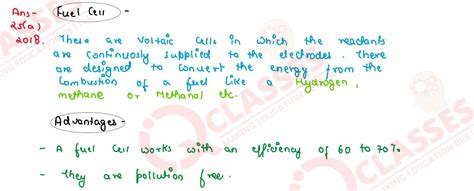 Ans-
25(a)
2018.
Fuel Cell -
These are voltaic cells in which the reactants
are continuously supplied to the electrodes. These
are designed to convert the energy from the
Combustion of a fuel like a Hydrogen,
methane or Methanol etc.
Advantages -
- A fuel cell works with an efficiency of 60 to 70%
- They are pollution free.
CLASSES
MAKING EDUCATION
CLASSES
MAKING EDUCATION